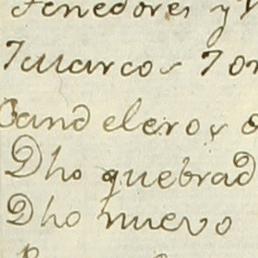 Tenedores y
Tuarcos Tor
Candeleros
Dho quebrad
Dho nuevo